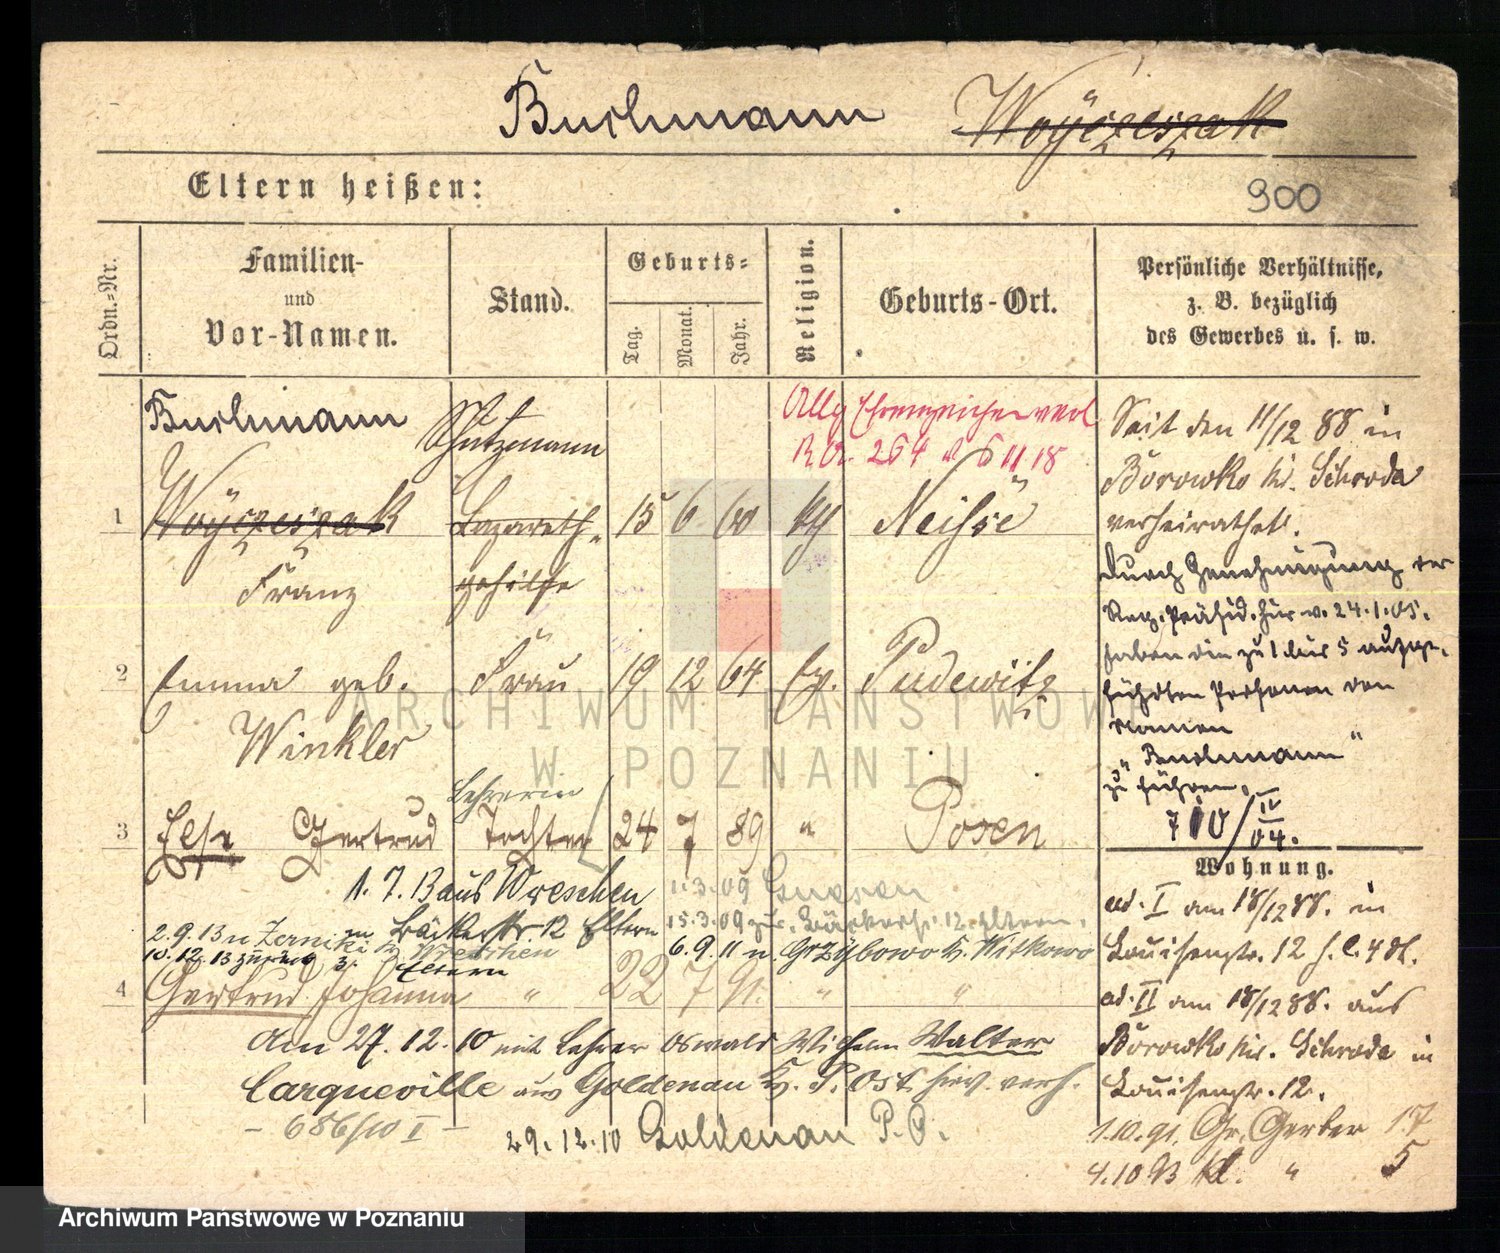 Buchmann Woÿczeszak
Eltern heißen:
900
Ordn.=Nr.
Familien-
und
Vor-Namen.
Stand.
Geburts=
Tag.
Monat.
Jahr.
Religion.
Geburts-Ort.
Persönliche Verhältnisse,
z. B. bezüglich
des Gewerbes u. s. w.
Buchmann Schutzmann
Allg Ehrenzeichen verl
264 6 11 18
1 Woÿczeszak Lazareth- 15 6 60 kth Neisse
Franz gehilfe
2 Emma geb. Frau 19 12 64 Ev. Pudewitz
Winkler
Lehrerin
3 Else Gertrud Tochter 24 7 89 " Posen
1. 7. 13 aus Wreschen 1.3.09 Gnesen
2.9.13 n Zerniki Kr. Wreschen
zu Bäckerstr 12 Eltern 15.3.09 zur. Bäckerstr. 12. Eltern.
10.12.13 zurück z. Eltern 6.9.11 n Grzybowo Kr. Witkowo
4 Gertrud Johanna " 22 7 91. " "
Am 27.12.10 mit Lehrer Oswald Wilhelm Walter
Carqueville aus Goldenau Kr. P. Ost hier verh.
- 686/10 I -
29.12.10 Goldenau P.O.
Seit den 11/12 88 in
Borowko Kr. Schroda
verheirathet.
Durch Genehmigung der
Reg. Präsid. hier v. 24.1.05.
haben die zu 1 bis 5 aufge-
führten Personen den
Namen
"Buchmann"
zu führen.
710/IV 04.
Wohnung.
ad. I am 18/12 88. in
Louisenstr. 12
ad. II am 18/12 88. aus
Borowko Kr. Schroda in
Louisenstr. 12.
1.10.91. Gr. Gerber 17
4.10 93 Kl. " 5
ARCHIWUM PAŃSTWOWE
W POZNANIU
Archiwum Państwowe w Poznaniu